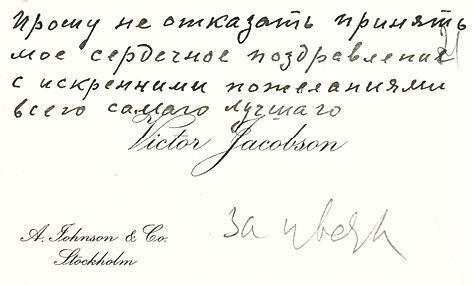 Прошу не отказать принять
мое сердечное поздравление
с искренними пожеланиями
всего самаго лучшаго
Victor Jacobson
A. Johnson & Co.
Stockholm
за